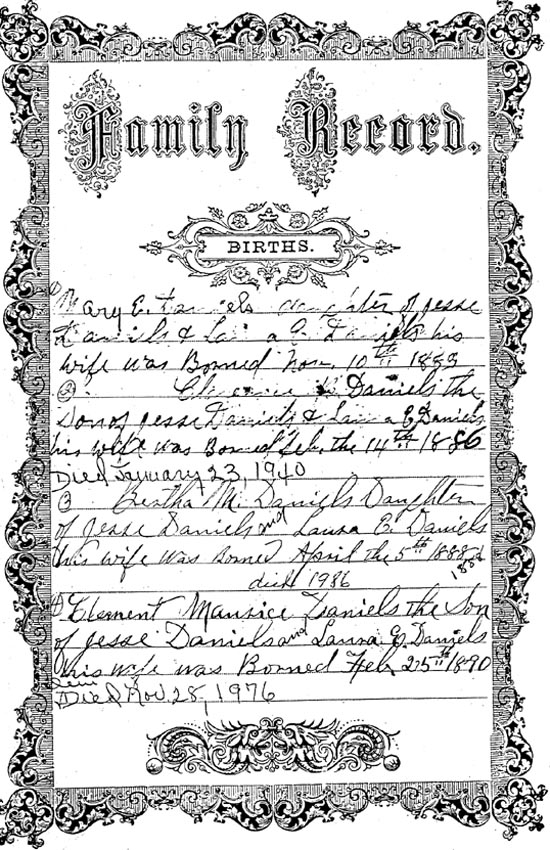 Family Record.
BIRTHS.
1 Mary E. Daniels daughter of Jesse
Daniels & Laura E. Daniels his
wife was Borned Nov. 10th 1883
2. Clarence Daniels the
Son of Jesse Daniels & Laura E Daniels
his wife was Borned Feb. the 14th 1886
Died January 23, 1940
3 Bertha M. Daniels Daughter
of Jesse Daniels and Laura E. Daniels
his wife was Borned April the 5th 1888
188
died 1986
4 Clement Maurice Daniels the Son
of Jesse Daniels and Laura E. Daniels
his wife was Borned Feb. 25th 1890
Died Nov. 28, 1976